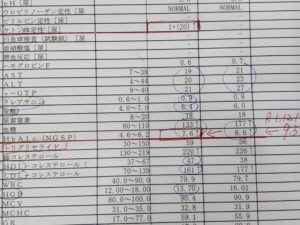 ウロビリノーゲン定性 [尿 NORMAL NORMAL
ビリルビン定性 [尿] － －
ケトン体定性 [尿] 1+(20)↑
白血球検査 (試験紙) [尿 － －
亜硝酸塩 [尿
潜血反応 [尿
ヘモグロビンF 0.6 0.7
AST 7～38 19 21
ALT 4～44 20 23
γ－GTP 9～40 21 27
クレアチニン 0.6～1.0 0.9 0.8
尿酸 4.0～7.0 6.4 6.0
尿素窒素 8～20 18 18
血糖 60～110 133↑ 177↑
HbA1c (NGSP) 4.6～6.2 7.6↑ 8.6↑ 9.3
トリグリセライド 30～150 59 56
総コレステロール 130～219 220↑ 226↑
HDLコレステロール 37～67 47 38
LDLコレステロール 70～139 161↑ 177↑
WBC 40.0～90.0 79.9 79.7
HGB 12.00～18.00 15.70 16.01
MCV 80.0～100.0 90.4 90.9
MCHC 31.0～35.0 32.8 31.9
GR 17.0～77.0 59.1 55.9